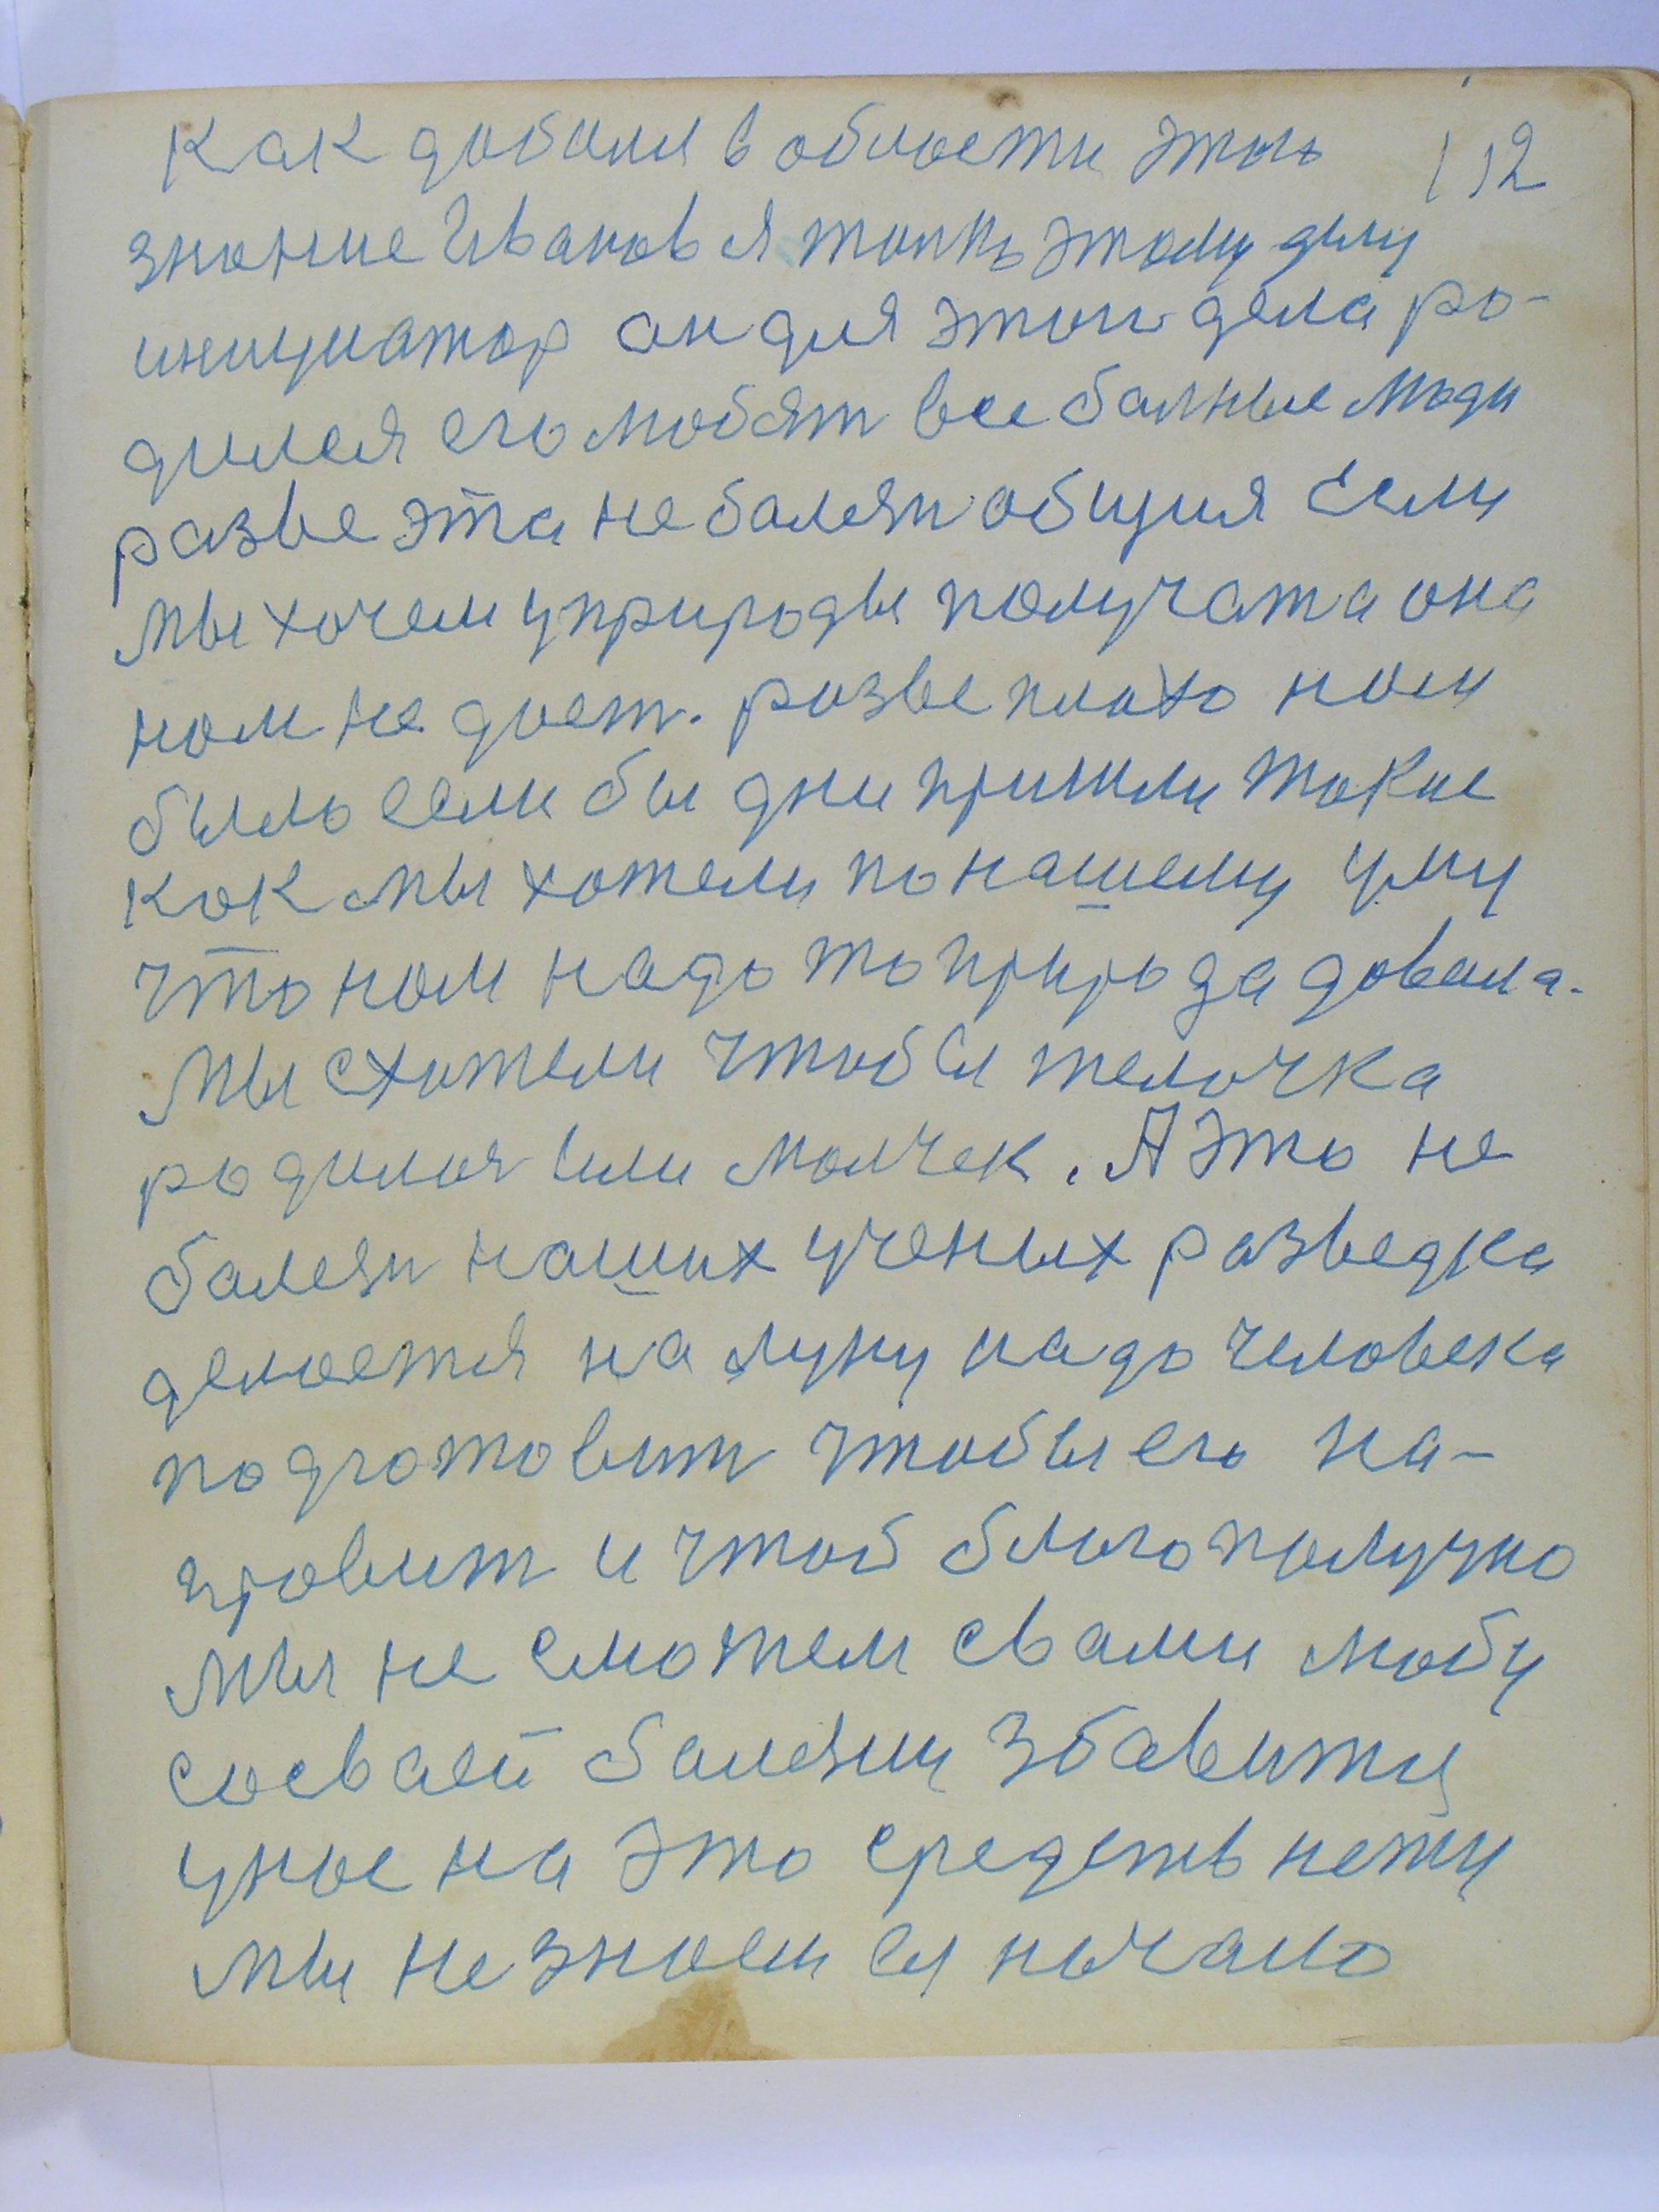 Как добилися в области этого 112
знание Иванов я этому делу
инициатор он для этого дела ро-
дился его любят все больные люди
разве эта не болезн общия Если
мы хочем у природы получат а она
нам не дает. разве плохо нам
было если бы дни пришли такие
как мы хотели по нашему уму
что нам надо то природа давала.
Мы схотели чтобы телочка
родилас или малчек. А это не
болезн наших ученых разведка
делается на луну надо человека
подготовит чтобы его на-
правит и чтоб благополучно
Мы не сможем с вами любу
сосваей болезни збавитц
у нас на это средств нету
мы не знаем ея начало